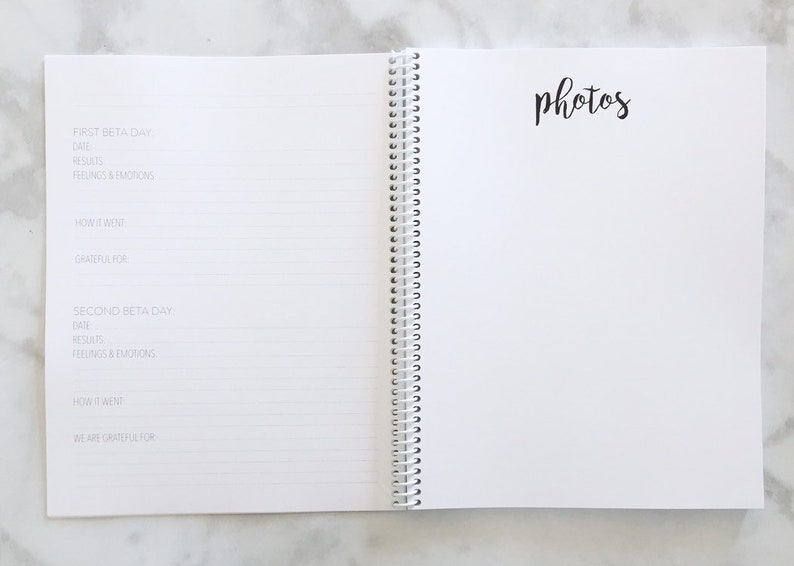 FIRST BETA DAY:
DATE:
RESULTS:
FEELINGS & EMOTIONS:
HOW IT WENT:
GRATEFUL FOR:
SECOND BETA DAY:
DATE:
RESULTS:
FEELINGS & EMOTIONS:
HOW IT WENT:
WE ARE GRATEFUL FOR:
photos